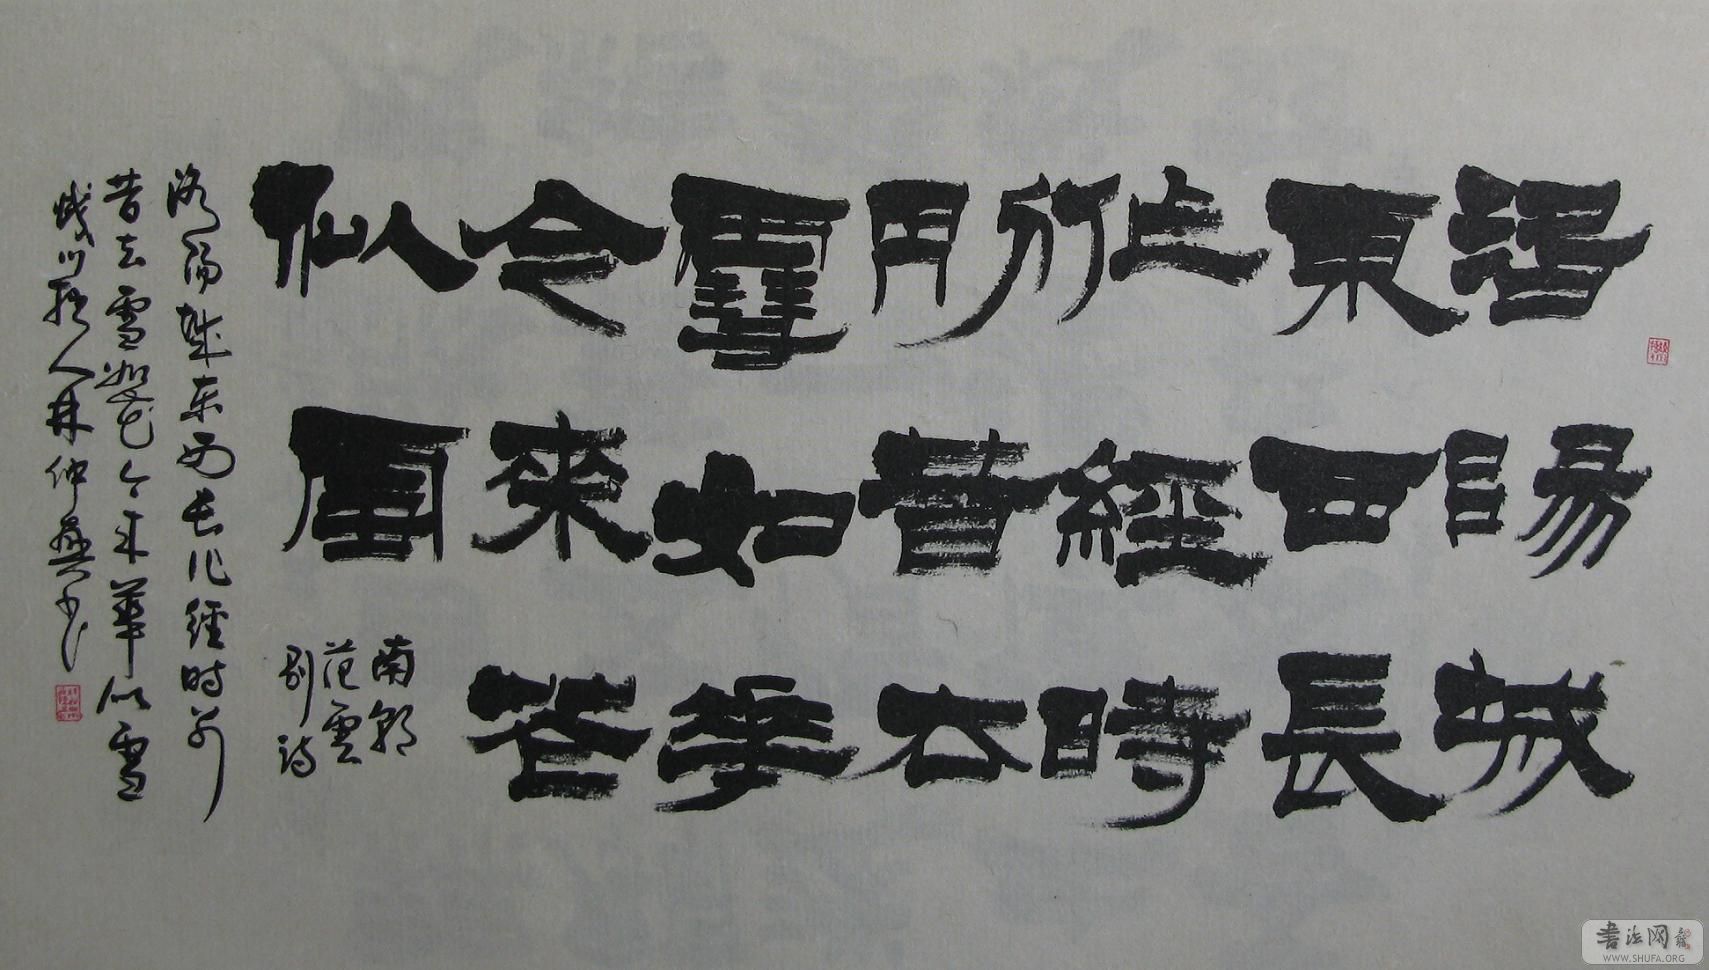 洛陽城
東西長
作經時
別昔去
雪如華
今來花
似雪
南朝
范雲
別詩
洛陽城东西长作經时别
昔去雪如花今来華似雪
人林仲興书
书法网
WWW.SHUFA.ORG